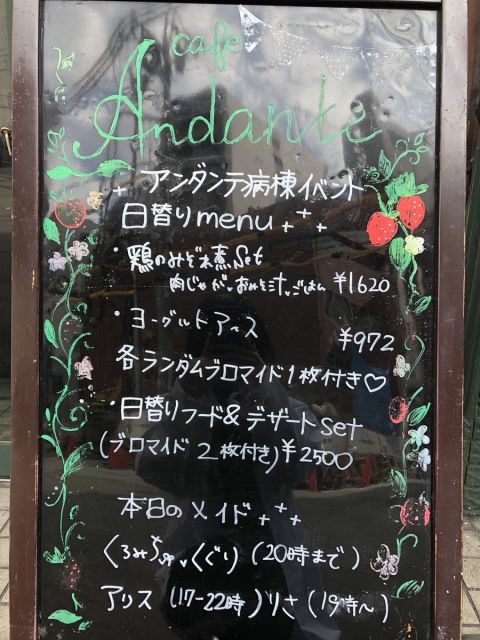 cafe
Andante
アンダンテ病棟イベント
日替りmenu
・鶏のみぞれ煮Set
肉じゃが。おみそ汁。ごはん ¥1620
・ヨーグルトアイス ¥972
各ランダムブロマイド1枚付き♡
・日替りフード&デザートset
(ブロマイド2枚付き)¥2500
本日のメイド
くるみ くぐり(20時まで)
アリス(17-22時)りさ(19時〜)